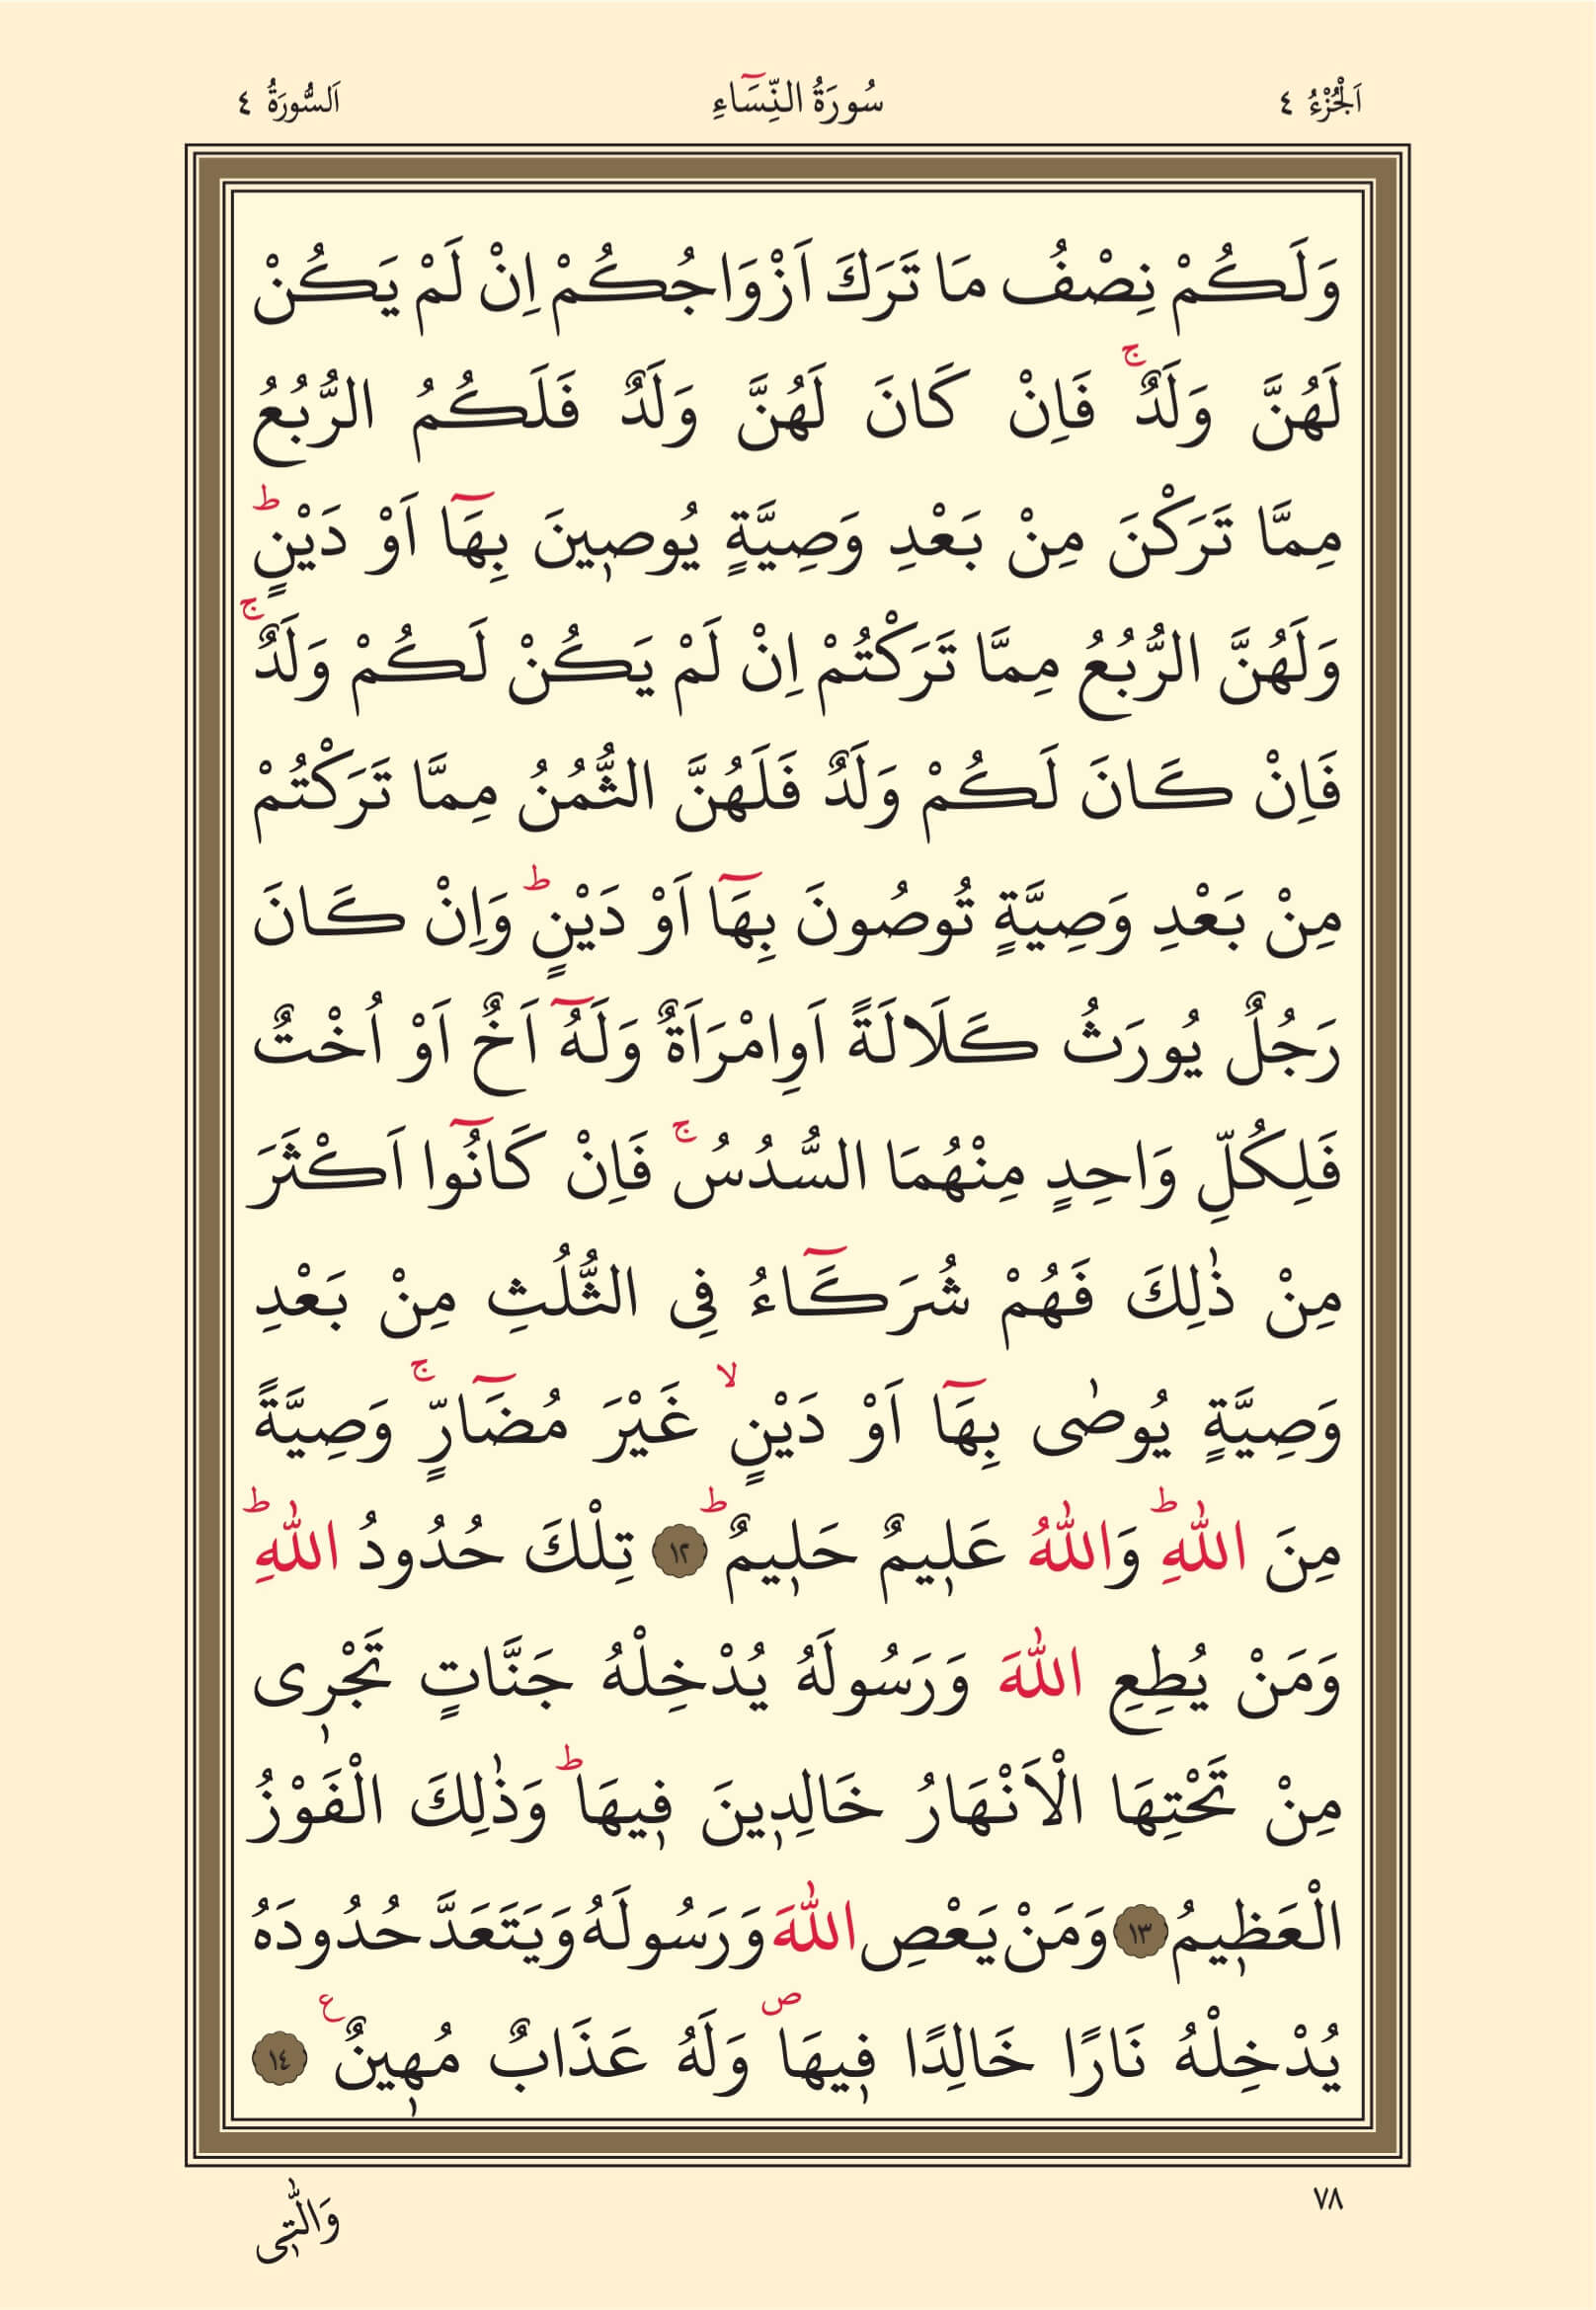 اَلْجُزْءُ ٤ سُورَةُ النِّسَٓاءِ اَلسُّورَةُ ٤
وَلَكُمْ نِصْفُ مَا تَرَكَ اَزْوَاجُكُمْ اِنْ لَمْ يَكُنْ
لَهُنَّ وَلَدٌۚ فَاِنْ كَانَ لَهُنَّ وَلَدٌ فَلَكُمُ الرُّبُعُ
مِمَّا تَرَكْنَ مِنْ بَعْدِ وَصِيَّةٍ يُوصٖينَ بِهَٓا اَوْ دَيْنٍؕ
وَلَهُنَّ الرُّبُعُ مِمَّا تَرَكْتُمْ اِنْ لَمْ يَكُنْ لَكُمْ وَلَدٌۚ
فَاِنْ كَانَ لَكُمْ وَلَدٌ فَلَهُنَّ الثُّمُنُ مِمَّا تَرَكْتُمْ
مِنْ بَعْدِ وَصِيَّةٍ تُوصُونَ بِهَٓا اَوْ دَيْنٍؕ وَاِنْ كَانَ
رَجُلٌ يُورَثُ كَلَالَةً اَوِامْرَاَةٌ وَلَهُٓ اَخٌ اَوْ اُخْتٌ
فَلِكُلِّ وَاحِدٍ مِنْهُمَا السُّدُسُۚ فَاِنْ كَانُٓوا اَكْثَرَ
مِنْ ذٰلِكَ فَهُمْ شُرَكَٓاءُ فِى الثُّلُثِ مِنْ بَعْدِ
وَصِيَّةٍ يُوصٰى بِهَٓا اَوْ دَيْنٍۙ غَيْرَ مُضَٓارٍّۚ وَصِيَّةً
مِنَ اللّٰهِؕ وَاللّٰهُ عَلٖيمٌ حَلٖيمٌؕ ١٢ تِلْكَ حُدُودُ اللّٰهِؕ
وَمَنْ يُطِعِ اللّٰهَ وَرَسُولَهُ يُدْخِلْهُ جَنَّاتٍ تَجْرٖى
مِنْ تَحْتِهَا الْاَنْهَارُ خَالِدٖينَ فٖيهَاؕ وَذٰلِكَ الْفَوْزُ
الْعَظٖيمُ ١٣ وَمَنْ يَعْصِ اللّٰهَ وَرَسُولَهُ وَيَتَعَدَّ حُدُودَهُ
يُدْخِلْهُ نَارًا خَالِدًا فٖيهَاࣕ وَلَهُ عَذَابٌ مُهٖينٌ ع ١٤
٧٨
وَالّٰتٖى